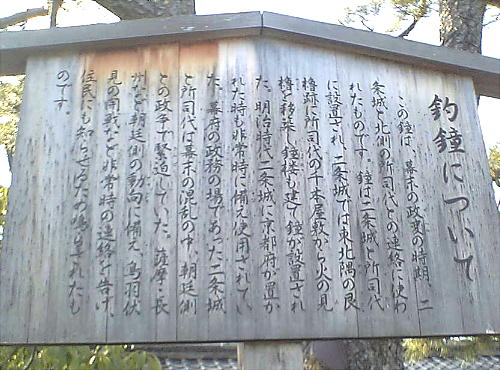 釣鐘について
この鐘は、幕末の政変の時期、二
条城と北側の所司代との連絡に使わ
れたものです。鐘は二条城と所司代
に設置され、二条城では東北隅の艮
櫓跡に所司代の千本屋敷から火の見
櫓を移築し、鐘楼も建て鐘が設置され
た。明治時代二条城に京都府が置か
れた時も非常時に備え使用されてい
た。幕府の政務の場であった二条城
と所司代は幕末の混乱の中、朝廷側
との政争で緊迫していた。薩摩・長
州など朝廷側の動向に備え、鳥羽伏
見の開戦など非常時の連絡を告げ、
住民にも知らせるため鳴らされたも
のです。